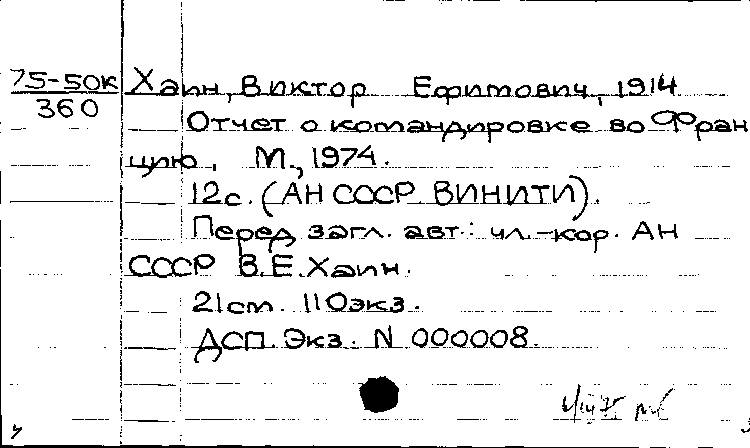 75-50к Хаин, Виктор Ефимович, 1914
360
Отчет о командировке во Фран
цию. М., 1974.
12с. (АН СССР ВИНИТИ).
Перед загл. авт.: чл.-кор. АН
СССР В.Е.Хаин.
21см. 110экз.
ДСП. Экз. N 000008.